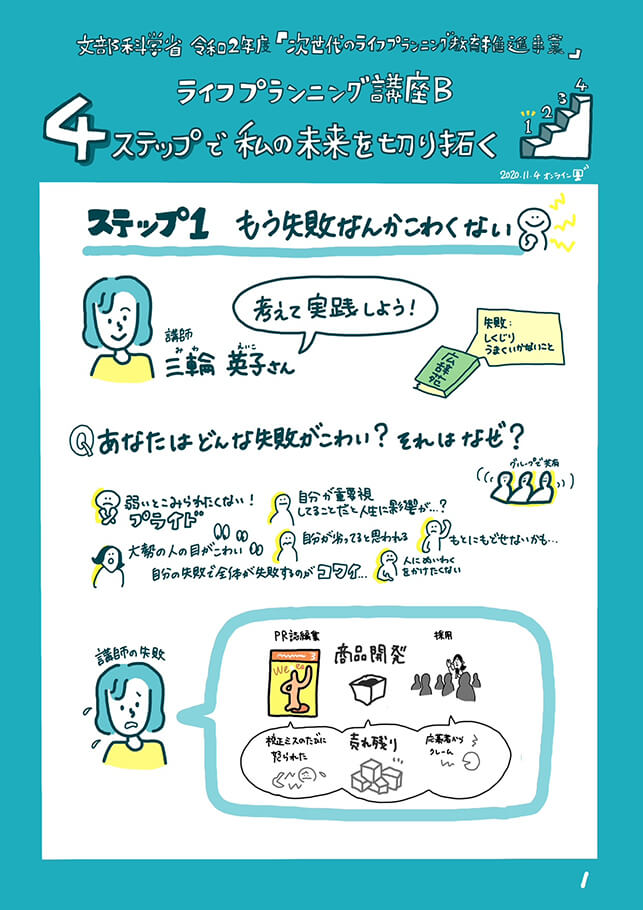 文部科学省 令和2年度「次世代のライフプランニング教育推進事業」
ライフプランニング講座B
4ステップで私の未来を切り拓く
1 2 3 4
2020.11.4 オンライン
ステップ1 もう失敗なんかこわくない
考えて実践しよう!
講師
みわ えいこ
三輪 英子さん
失敗:
しくじり
うまくいかないこと
広辞苑
Q あなたはどんな失敗がこわい? それはなぜ?
グループで共有
弱いとこみられたくない!
プライド
自分が重要視
してることだと人生に影響が…?
大勢の人の目がこわい
自分が劣ってると思われる
もとにもどせないかも…
自分の失敗で全体が失敗するのがコワイ…
人にめいわく
をかけたくない
講師の失敗
PR誌編集
We
商品開発
採用
校正ミスのたびに
怒られた
売れ残り
応募者から
クレーム
1